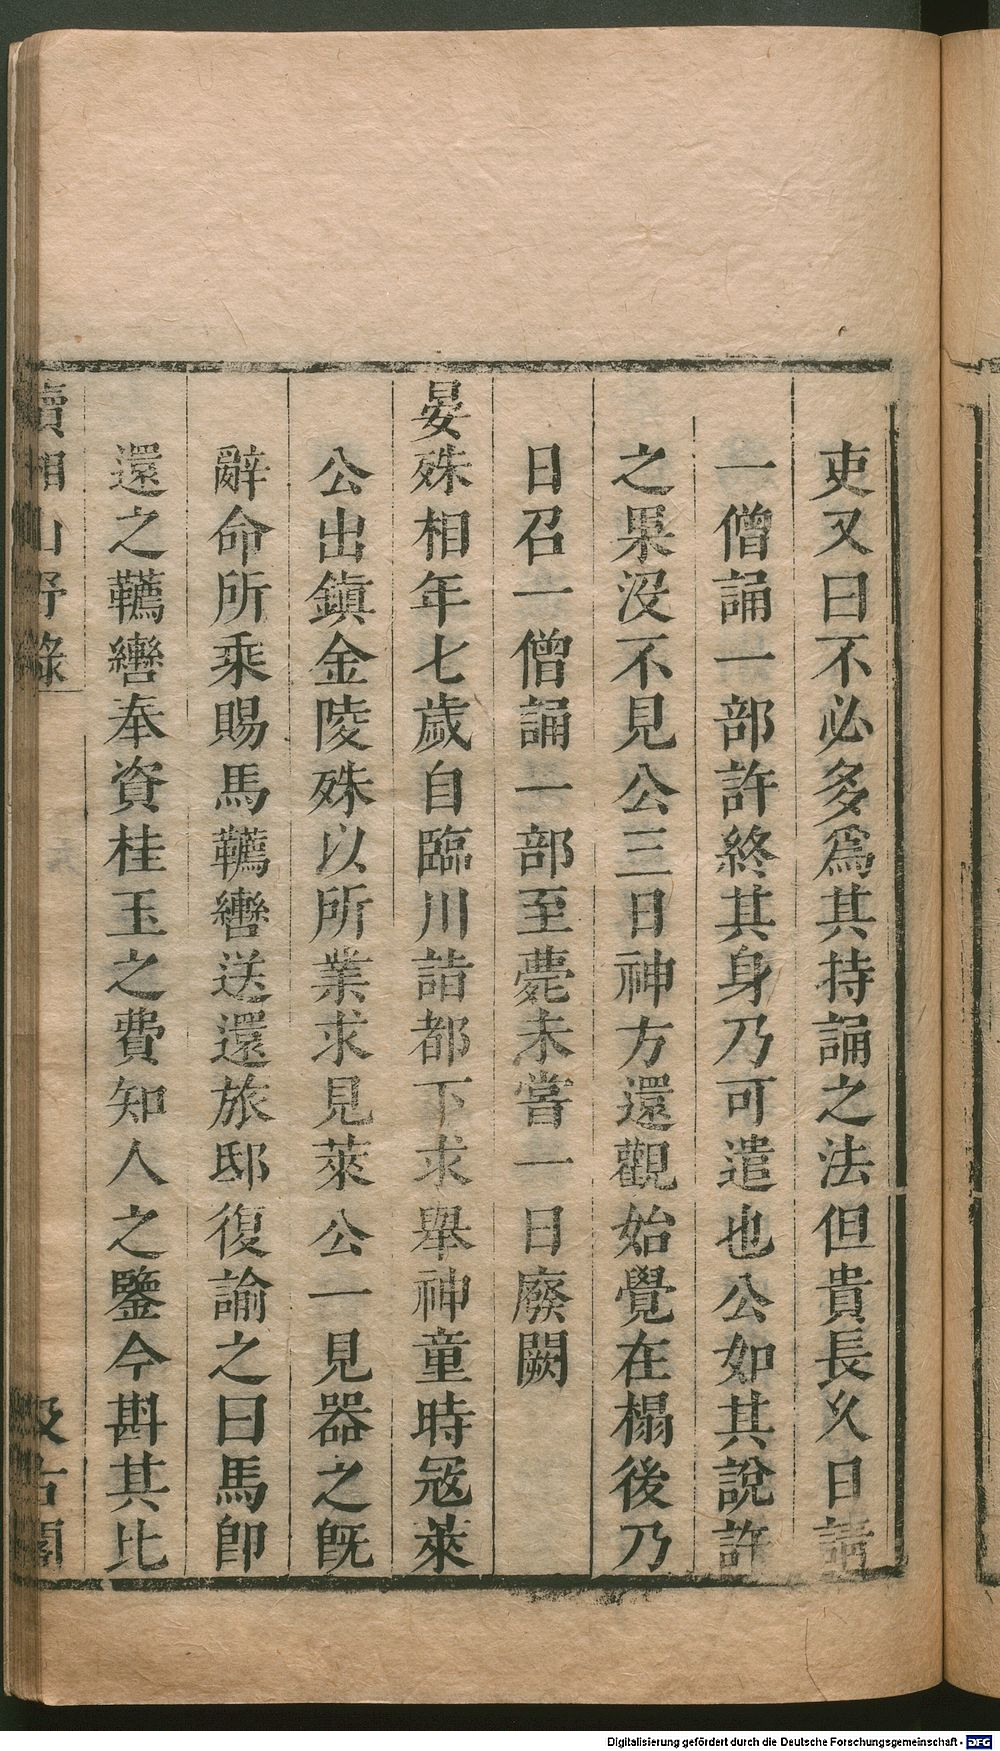 吏又曰不必多爲其持誦之法但貴長久日請
一僧誦一部許終其身乃可遣也公如其說許
之果沒不見公三日神方還觀始覺在榻後乃
日召一僧誦一部至薨未嘗一日廢闕
晏殊相年七歲自臨川詣都下求舉神童時冦萊
公出鎮金陵殊以所業求見萊公一見器之旣
辭命所乘賜馬韉轡送還旅邸復諭之曰馬卽
還之韉轡奉資桂玉之費知人之鑒今斟其比
續湘山野錄
汲古閣
Digitalisierung gefördert durch die Deutsche Forschungsgemeinschaft - DFG